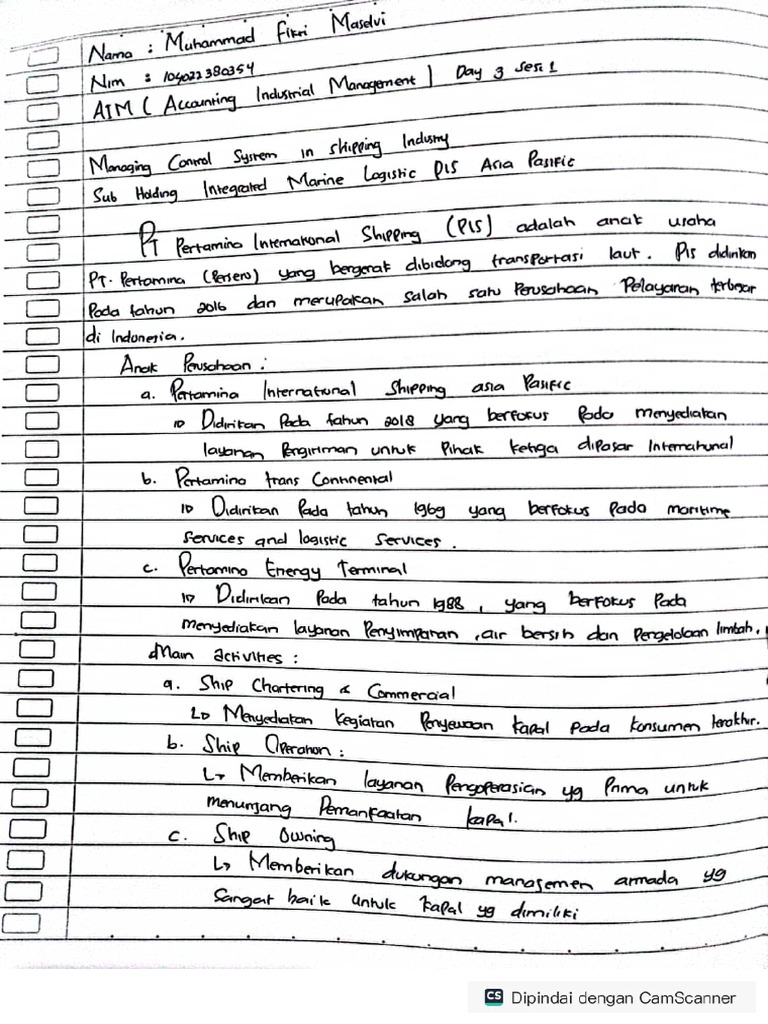 Nama : Muhammad Fikri Maselvi
Nim : 104022380354
AIM ( Accounting Industrial Management ) Day 3 Sesi 1
Managing Control System in shipping Industry
Sub Holding Integrated Marine Logistic PIS Asia Pasific
PT Pertamina International Shipping (PIS) adalah anak usaha
PT. Pertamina (Persero) yang bergerak dibidang transportasi laut. Pis didirikan
Pada tahun 2016 dan merupakan salah satu Perusahaan Pelayaran terbesar
di Indonesia.
Anak Perusahaan :
a. Pertamina International Shipping asia Pasific
Didirikan Pada tahun 2018 yang berfokus Pada menyediakan
layanan Pengiriman untuk Pihak ketiga dipasar International
b. Pertamina trans Continental
Didirikan Pada tahun 1969 yang berfokus Pada maritime
Services and logistic Services.
c. Pertamina Energy Terminal
Didirikan Pada tahun 1988, yang berfokus Pada
menyediakan layanan Penyimpanan, air bersih dan Pengelolaan limbah.
Main activities :
a. Ship Chartering & Commercial
↳ Menyediakan kegiatan Penyewaan kapal pada konsumen terakhir.
b. Ship Operation :
↳ Memberikan layanan Pengoperasian yg Prima untuk
menunjang Pemanfaatan kapal.
c. Ship Owning
↳ Memberikan dukungan manajemen armada yg
Sangat baik untuk kapal yg dimiliki
CS Dipindai dengan CamScanner